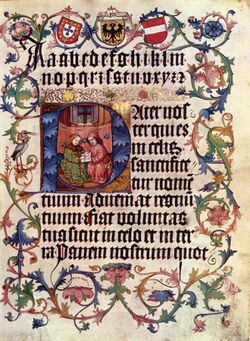 A a b c d e f g h i k l m
n o p q r s s t u v x y z
Pater nos
ter qui es
in celis
sanctifice
tur nomē
tuum adueniat regnū
tuum fiat voluntas
tua sicut in celo et in ter
ra Panem nostrum quot